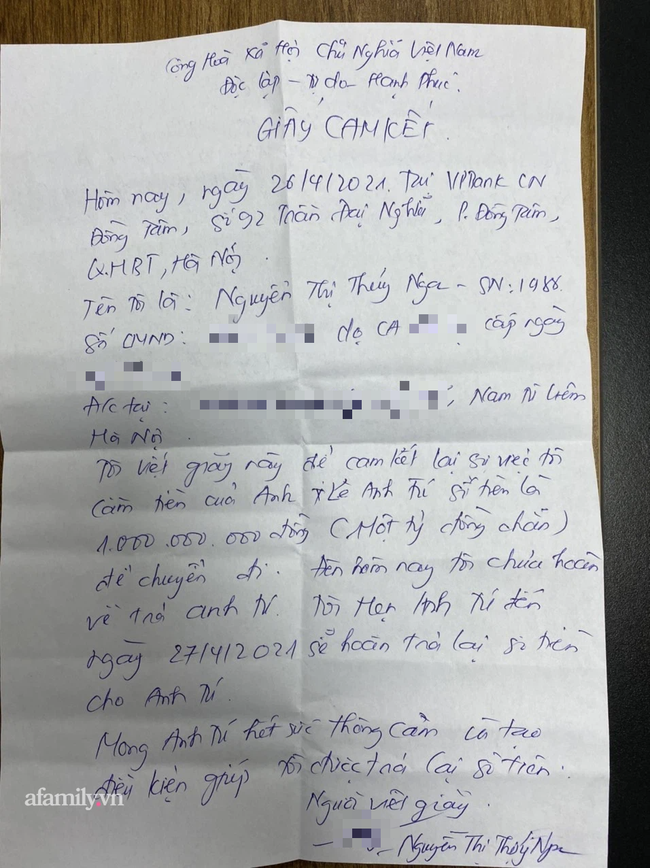 Cộng Hoà Xã Hội Chủ Nghĩa Việt Nam
Độc lập - Tự do Hạnh Phúc.
GIẤY CAM KẾT.
Hôm nay, ngày 26/4/2021. Tại VPBank CN
Đồng Tâm, Số 92 Trần Đại Nghĩa, P. Đồng Tâm,
Q.HBT, Hà Nội.
Tên tôi là: Nguyễn Thị Thúy Nga - SN: 1988
Số CMND: do CA cấp ngày
Đ/c tại: , Nam Từ Liêm
Hà Nội
Tôi viết giấy này để cam kết lại sự việc tôi
cầm tiền của Anh Lê Anh Tú số tiền là
1.000.000.000 đồng (Một tỷ đồng chẵn)
để chuyển đi. Đến hôm nay tôi chưa hoàn
về trả anh Tú. Tôi Hẹn Anh Tú đến
ngày 27/4/2021 sẽ hoàn trả lại số tiền
cho Anh Tú.
Mong Anh Tú hết sức thông cảm và tạo
điều kiện giúp tôi được trả lại số tiền.
Người viết giấy
Nguyễn Thị Thúy Nga
afamily.vn